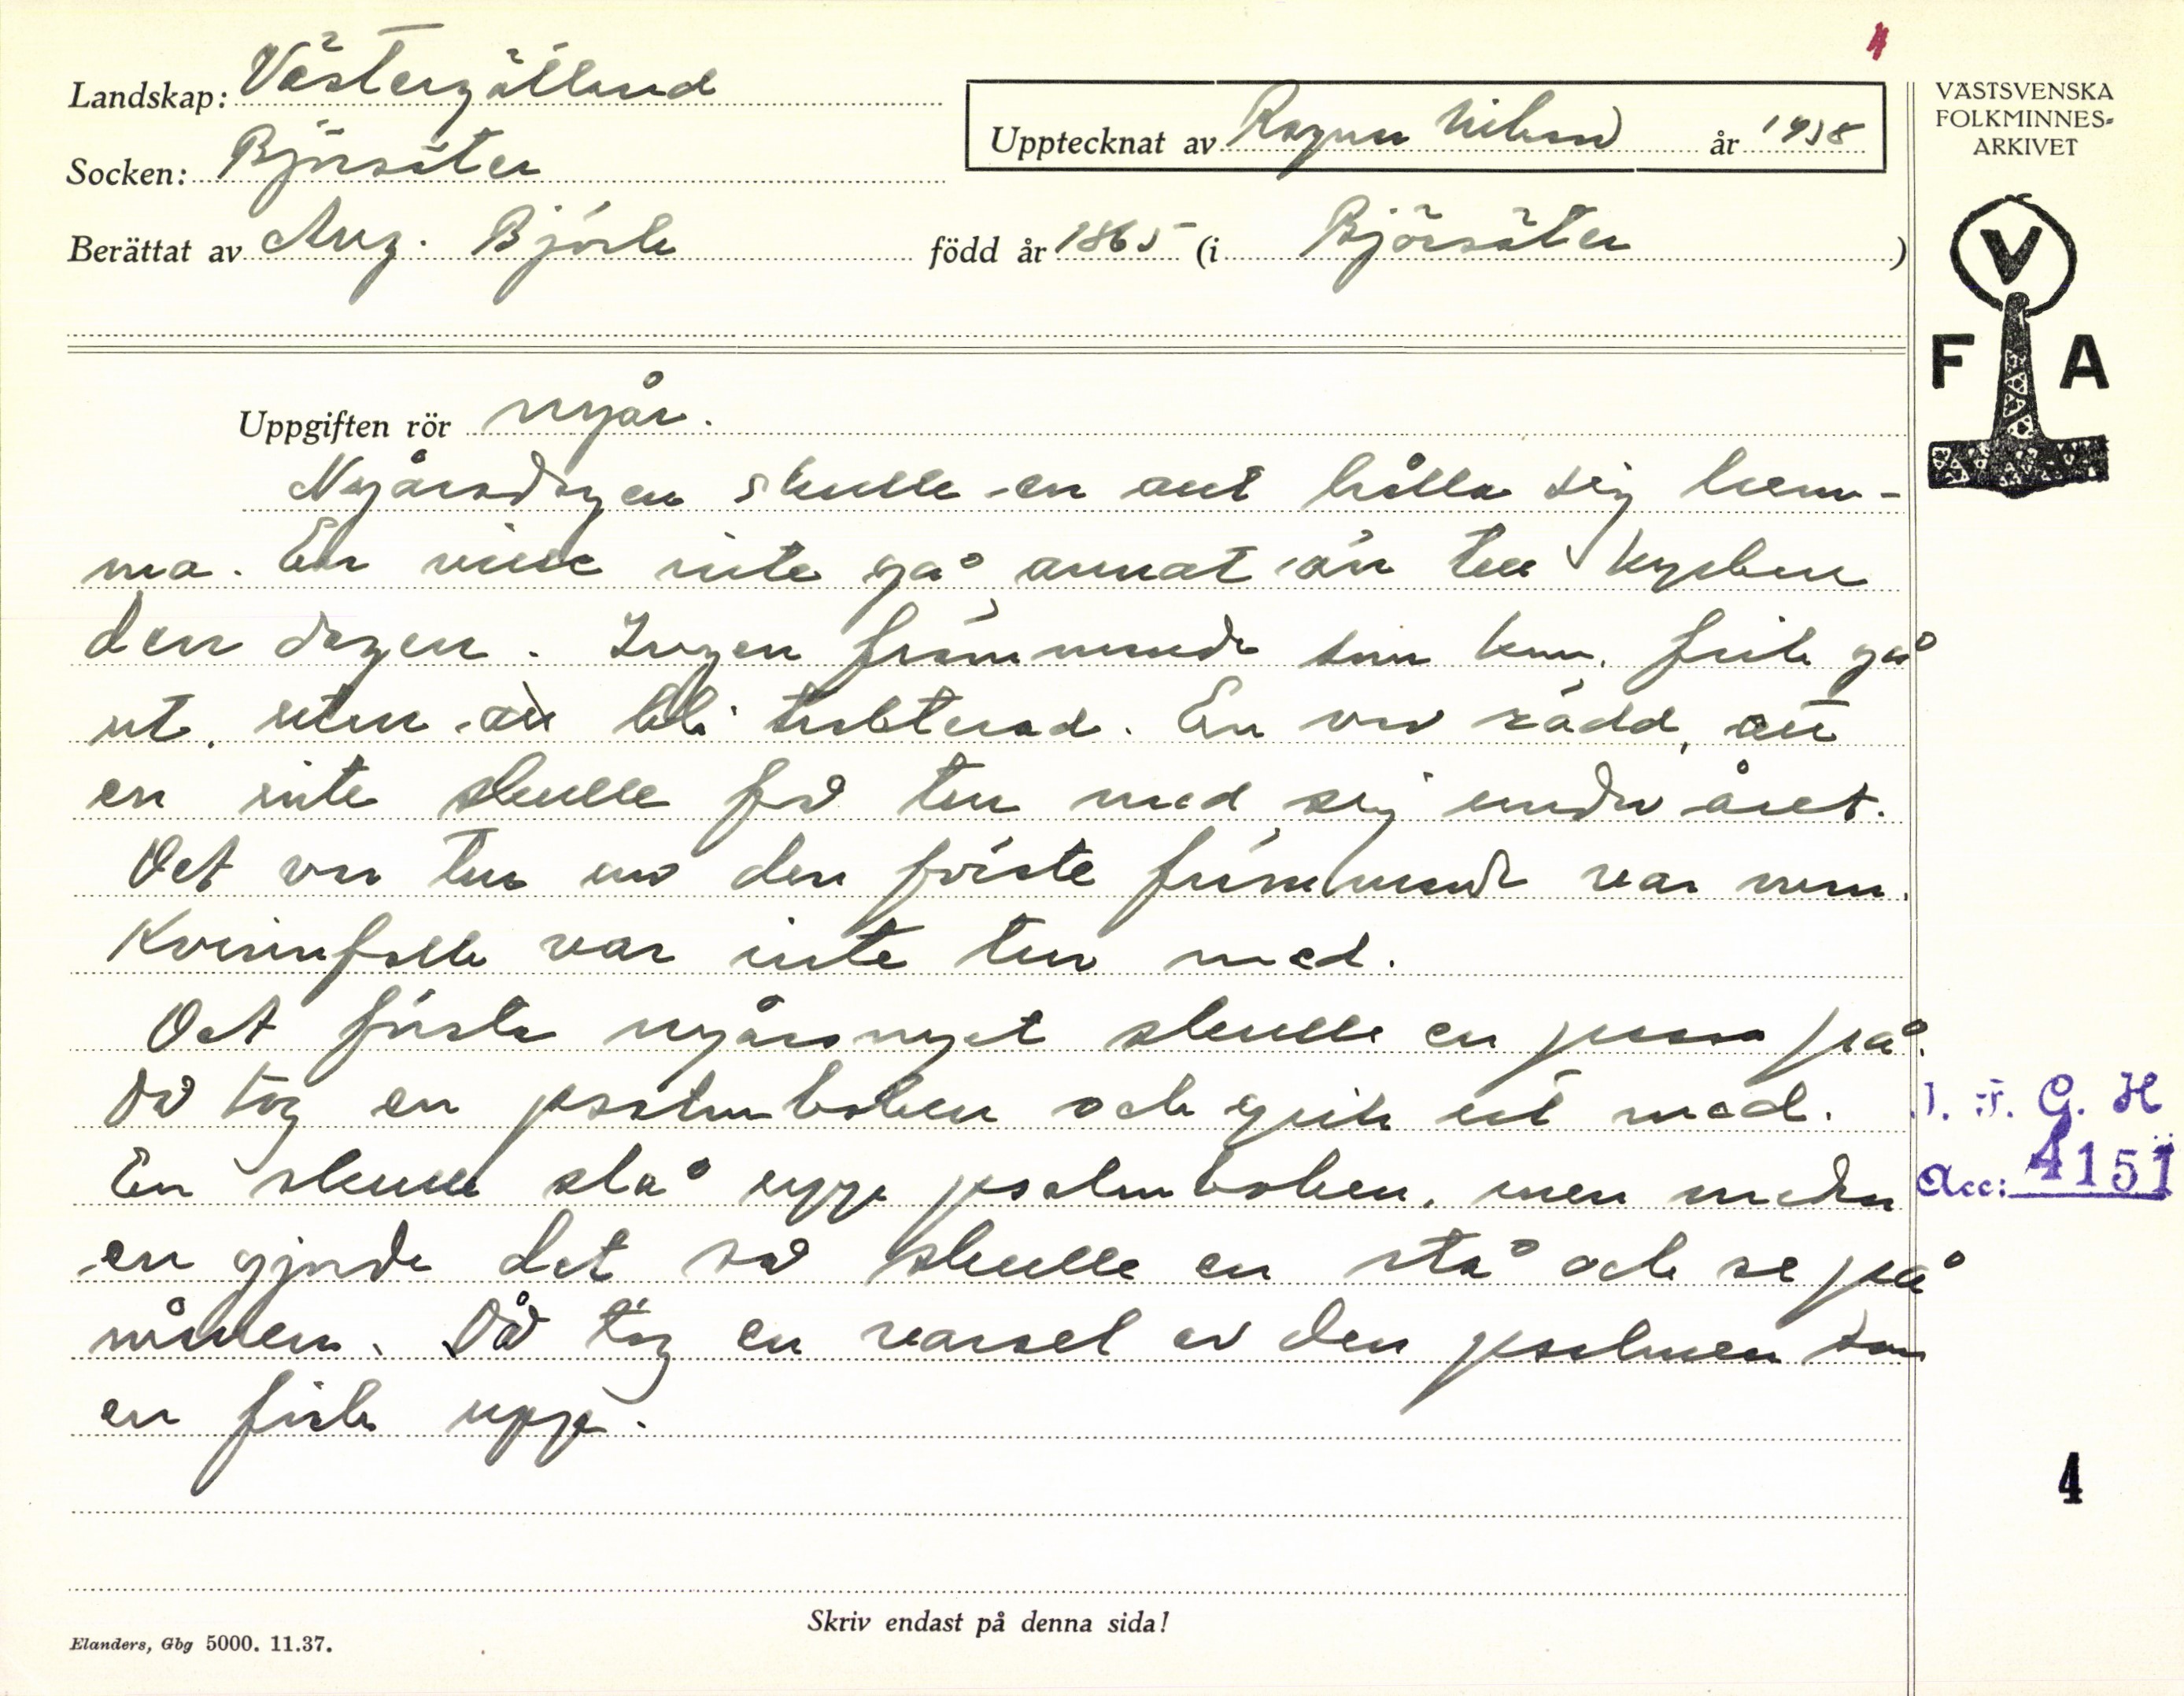 Landskap: Västergötland
Upptecknat av Ragnar Nilsson år 1938
VÄSTSVENSKA
FOLKMINNES-
ARKIVET
Socken: Björsäter
Berättat av Aug. Björk född år 1865 (i Björsäter)
V
F A
Uppgiften rör nyår.
Nyårsdagen skulle en att hålla sig hem-
ma. En visse inte gå annat än till kyrken
den dagen. Ingen främmade som kom, fick gå
ut, utan att bli trakterad. En var rädd, att
en inte skulle få tur med sig under året.
Det var tur om den förste främmande var man.
Kvinnfolk var inte tur med.
Det första nyårsnyet skulle en passa på.
Då tog en psalmboken och gick ut med.
En skulle slå upp psalmboken, men medan
en gjorde det så skulle en stå och se på
månen. Då tog en varsel av den psalmen som
en fick upp.
I. F. G. H
Acc: 4151
4
Skriv endast på denna sida!
Elanders, Gbg 5000. 11.37.